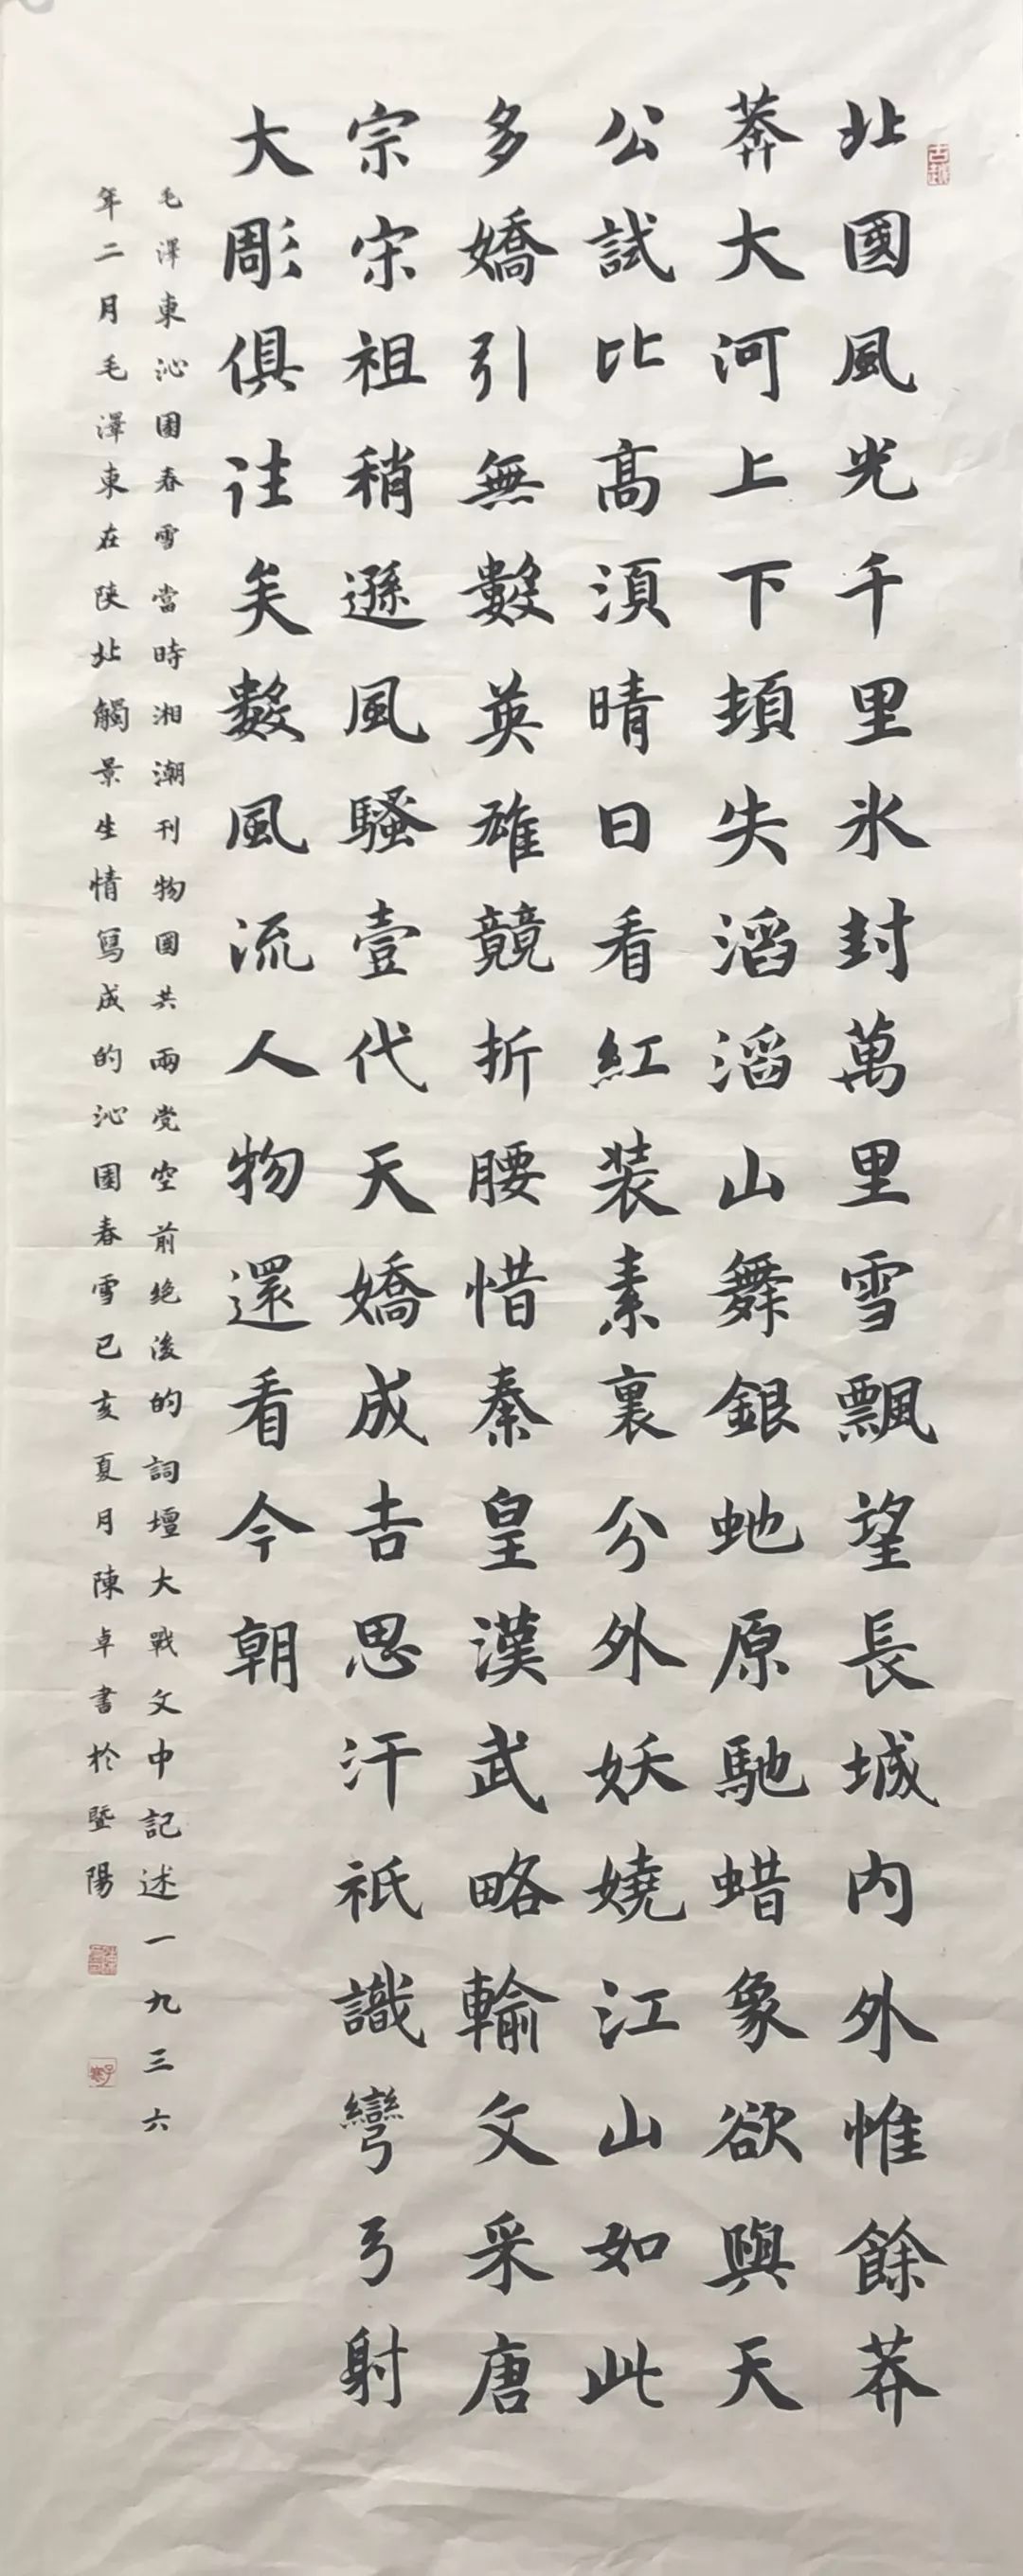 北國風光千里氷封萬里雪飄望長城内外惟餘莽
莽大河上下頓失滔滔山舞銀虵原馳蜡象欲與天
公試比高須晴日看紅装素裏兮外妖嬈江山如此
多嬌引無數英雄競折腰惜秦皇漢武略輸文采唐
宗宋祖稍遜風騷壹代天嬌成吉思汗祇識彎弓射
大彫俱往矣數風流人物還看今朝
毛澤東沁園春雪當時湘潮刊物國共兩党空前绝後的詞壇大戰文中記述一九三六
年二月毛澤東在陕北觸景生情寫成的沁園春雪已亥夏月陳卓書於暨陽
古越